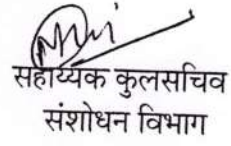 सहाय्यक कुलसचिव
संशोधन विभाग